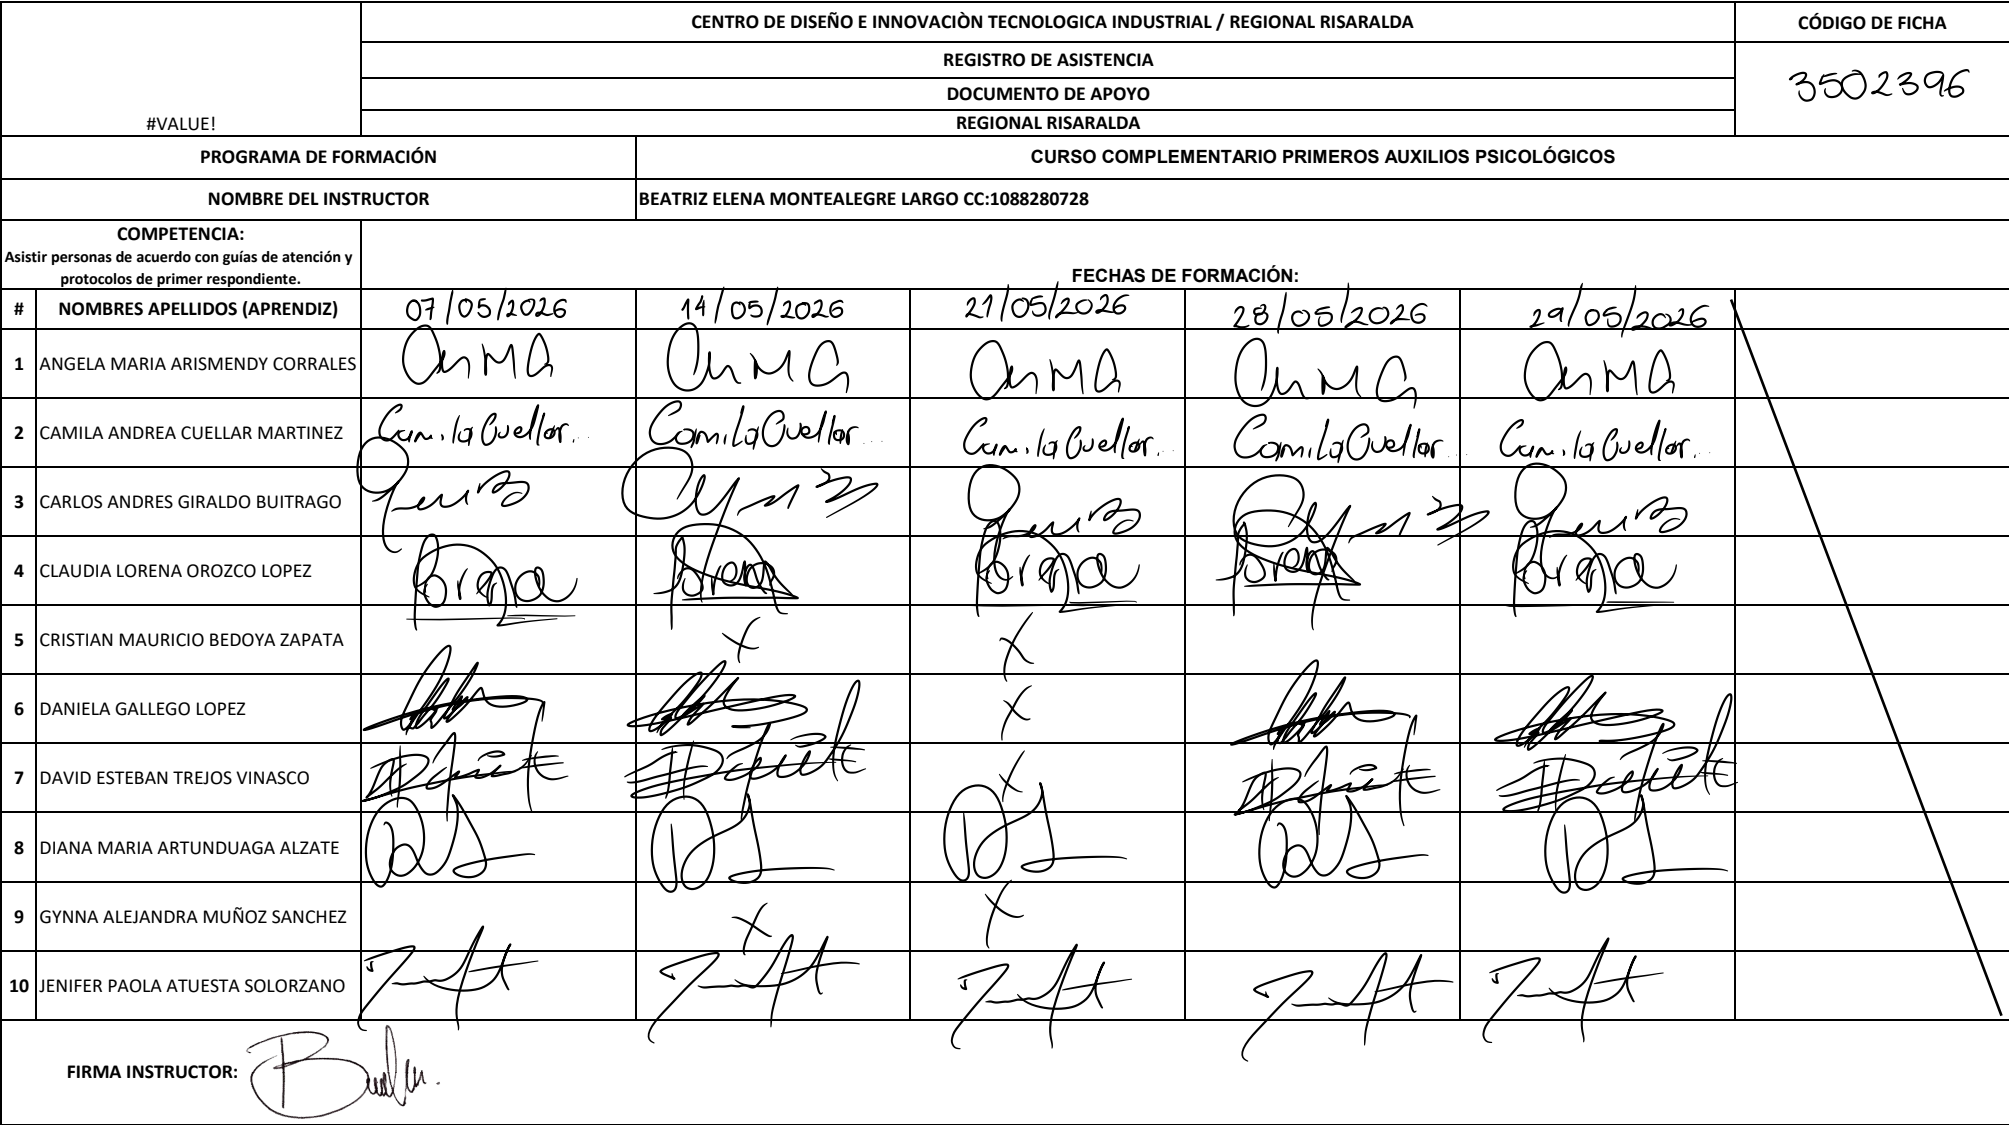 CENTRO DE DISEÑO E INNOVACIÒN TECNOLOGICA INDUSTRIAL / REGIONAL RISARALDA
CÓDIGO DE FICHA
REGISTRO DE ASISTENCIA
3502396
DOCUMENTO DE APOYO
#VALUE!
REGIONAL RISARALDA
PROGRAMA DE FORMACIÓN
CURSO COMPLEMENTARIO PRIMEROS AUXILIOS PSICOLÓGICOS
NOMBRE DEL INSTRUCTOR
BEATRIZ ELENA MONTEALEGRE LARGO CC:1088280728
COMPETENCIA:
Asistir personas de acuerdo con guías de atención y
protocolos de primer respondiente.
FECHAS DE FORMACIÓN:
# NOMBRES APELLIDOS (APRENDIZ) 07/05/2026 14/05/2026 21/05/2026 28/05/2026 29/05/2026
1 ANGELA MARIA ARISMENDY CORRALES
2 CAMILA ANDREA CUELLAR MARTINEZ Camila Cuellar. Camila Cuellar Camila Cuellar. Camila Cuellar Camila Cuellar.
3 CARLOS ANDRES GIRALDO BUITRAGO
4 CLAUDIA LORENA OROZCO LOPEZ
5 CRISTIAN MAURICIO BEDOYA ZAPATA X X
6 DANIELA GALLEGO LOPEZ X
7 DAVID ESTEBAN TREJOS VINASCO X
8 DIANA MARIA ARTUNDUAGA ALZATE
9 GYNNA ALEJANDRA MUÑOZ SANCHEZ X X
10 JENIFER PAOLA ATUESTA SOLORZANO
FIRMA INSTRUCTOR: